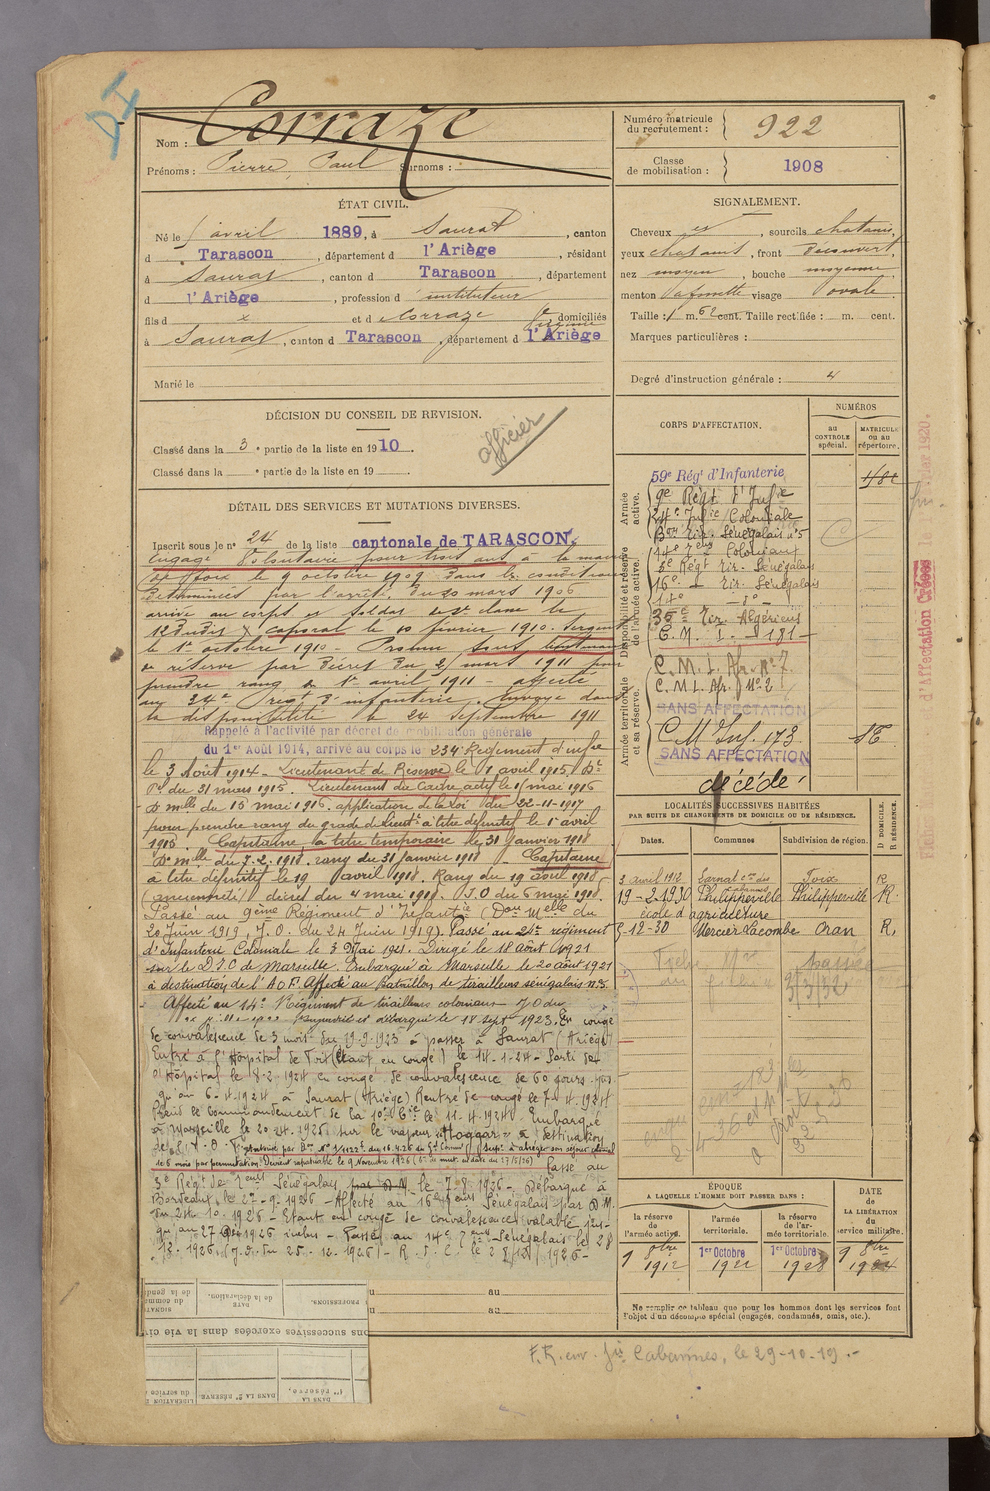 DI
Nom : Corraze
Prénoms : Pierre, Paul Surnoms :
Numéro matricule du recrutement : 922
Classe de mobilisation : 1908
ÉTAT CIVIL.
Né le avril 1889, à Saurat, canton
d Tarascon, département d l'Ariège, résidant
à Saurat, canton d Tarascon, département
d l'Ariège, profession d instituteur
fils d x et d Corraze domiciliés
à Saurat, canton d Tarascon, département d l'Ariège
Marié le
SIGNALEMENT.
Cheveux, sourcils chatains,
yeux chatains, front Découvert,
nez moyen, bouche moyenne,
menton visage ovale
Taille : 1 m. 62 cent. Taille rectifiée : m. cent.
Marques particulières :
Degré d'instruction générale : 4
DÉCISION DU CONSEIL DE REVISION.
Classé dans la 3e partie de la liste en 1910.
Classé dans la e partie de la liste en 19
officier
DÉTAIL DES SERVICES ET MUTATIONS DIVERSES.
Inscrit sous le n° 24 de la liste cantonale de TARASCON.
Engagé Volontaire pour trois ans à la mairie
de Foix le 9 octobre 1909 dans les conditions
déterminées par l'arrêté du 20 mars 1906
arrivé au corps et soldat de 2e classe le
12 dudit x caporal le 10 février 1910. Sergent
le 1er octobre 1910 - Promu sous lieutenant
de réserve par Décret du 2 mars 1911 pour
prendre rang du 1er avril 1911 - affecté
au 24e Regt d'infanterie. Envoyé dans
la disponibilité le 24 Septembre 1911
Rappelé à l'activité par décret de mobilisation générale
du 1er Août 1914, arrivé au corps le 234 Régiment d'infie
le 3 Août 1914 - Lieutenant de Réserve le 1 avril 1915. Dt
Pel du 31 mars 1915. Lieutenant du Cadre actif le 15 mai 1916
Don mlle du 15 mai 1916. application de la loi du 22-11-1917
pour prendre rang du grade de Lieutt à titre définitif le 1er avril
1916. Capitaine à titre temporaire le 31 Janvier 1918
Don mlle du 7.2.1918. rang du 31 Janvier 1918 - Capitaine
à titre définitif le 19 avril 1918. Rang du 19 avril 1918
(ancienneté) décret du 4 mai 1918. J.O du 6 mai 1918.
Passé au 9ème Régiment d'Infantie (Don Melle du
20 Juin 1919, J.O. du 24 Juin 1919). Passé au 24e régiment
d'Infanterie Coloniale le 3 Mai 1921. Dirigé le 18 août 1921
sur le D.I.C de Marseille. Embarqué à Marseille le 20 août 1921
à destination de l'AOF. Affecté au Bataillon de tirailleurs sénégalais n°5
Affecté au 14e Régiment de tirailleurs coloniaux - JO du
et débarqué le 18 sept 1923. En congé
de convalescence de 3 mois du 19-9-1923 à passer à Saurat (Ariège)
Entré à l'Hôpital de Foix (étant en congé) le 14-1-24 - Sorti de
l'Hôpital le 8-2-1924 en congé de convalescence de 60 jours jus-
qu'au 6-4-1924 à Saurat (Ariège) Rentré de congé le 7-4-1924
Prend le commandement de la 10e Cie le 11-4-1924. Embarqué
à Marseille le 20-4-1925 sur le vapeur "Hoggar" à destination
de l'A.O.F.
de 6 mois par permutation. Devient rapatriable le 9 Novembre 1926
Passé au
3e Régt de Tirailrs Sénégalais par D.M. le 7-8-1926 - Débarqué à
Bordeaux le 2-9-1926 - Affecté au 16e Tirailrs Sénégalais par D.M.
du 24-10-1926 - Étant en congé de convalescence valable jus-
qu'au 27 Déc 1926 inclus - Passé au 14e Tirailrs Sénégalais le 28
12-1926. (J.O. du 25-12-1926) - R.S.C. le 28/12/1926 -
CORPS D'AFFECTATION.
NUMÉROS
au CONTROLE spécial.
MATRICULE ou au répertoire.
Armée active.
Disponibilité et réserve de l'armée active.
Armée territoriale et sa réserve.
59e Régt d'Infanterie
9e Régt d'Infie
24e Infie Coloniale
Bon Tir. Sénégalais n°5
14e Tirs Coloniaux
3e Régt Tir. Sénégalais
16e - Tir. Sénégalais
14e - do -
35e Tir. Algériens
C.M.I. 181
C.M.I. Afr. N° 7
C.M.I. Afr. N° 2
SANS AFFECTATION
C.M. Inf. 173
SANS AFFECTATION
décédé
LOCALITÉS SUCCESSIVES HABITÉES
PAR SUITE DE CHANGEMENTS DE DOMICILE OU DE RÉSIDENCE.
Dates. Communes Subdivision de région. D DOMICILE. R RÉSIDENCE.
3 avril 1912 Foix R
19-2-1930 Philippeville Philippeville R.
école d'agriculture
5-12-30 Mercier Lacombe Oran R.
passée
3/3/32
ÉPOQUE
A LAQUELLE L'HOMME DOIT PASSER DANS :
DATE de LA LIBÉRATION du service militaire.
la réserve de l'armée active.
l'armée territoriale.
la réserve de l'armée territoriale.
9 8bre 1912
1er Octobre 1922
1er Octobre 1928
9 8bre 1934
Ne remplir ce tableau que pour les hommes dont les services font
l'objet d'un décompte spécial (engagés, condamnés, omis, etc.).
u au
u au
PROFESSIONS.
DATE de la déclaration.
ons successives exercées dans la vie civ
DANS LA 1re réserve,
DANS LA 2e RÉSERVE
LIBÉRATION du service
F.R. env. Gie Cabannes, le 29-10-19. -
d'Affectation